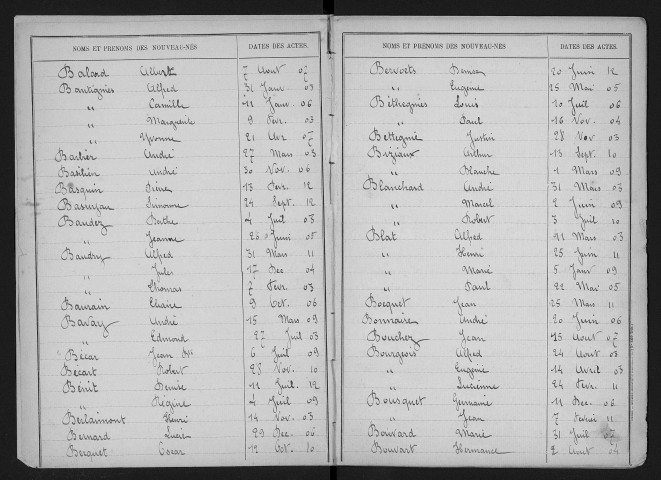 NOMS ET PRÉNOMS DES NOUVEAU-NÉS DATES DES ACTES.
Balard Albert 7 Aout 07
Bantignies Alfred 31 Janv 03
" Camille 11 Janv. 06
" Marguerite 9 Fevr. 03
" Yvonne 21 Avr. 07
Barbier André 27 Mars 03
Bastien André 30 Nov. 06
Basquin 13 Fevr. 12
Simonne 24 Sept. 12
Baudez Berthe 4 Juil 03
" Jeanne 26 Juin 05
Baudry Alfred 31 Mars 11
" Jules 17 Dec 04
" Thomas 7 Fev. 03
Baurain Claire 9 Oct. 06
Bavay André 15 Mars 09
" Edmond 27 Juil 03
Bécar Jean Bte 6 Juil 09
Bécart Robert 28 Nov. 10
Bénit Denise 11 Juil. 12
" Régine 4 Juil 09
Berlaimont Henri 14 Nov. 03
Bernard Lucie 29 Dec. 06
Becquet Oscar 12 Oct. 10
NOMS ET PRÉNOMS DES NOUVEAU-NÉS DATES DES ACTES.
Bervoets 20 Juin 12
" Eugène 25 Mai 05
Béthegnies Louis 20 Juil 06
" Paul 16 Nov. 04
Bettegnie Justin 28 Nov 03
Biziaux Arthur 13 Sept. 10
" Blanche 1 Mars 09
Blanchard André 31 Mars 03
" Marcel 2 Juin 09
" Robert 3 Juil 10
Blat Alfred 11 Mars 03
" Henri 25 Juin 11
" Marie 5 Janv 09
" Paul 22 Mai 05
Bocquet Jean 25 Mars 11
Bonnaire André 20 Juin 06
Bouchez Jean 15 Aout 07
Bourgeois Alfred 24 Aout 03
" Eugène 14 Avril 03
" Lucienne 24 Fevr. 11
Bousquet Germaine 11 Dec. 06
" Jean 7 Fevrier 11
Bouvard Marie 31 Juil 07
Bouvart Hermance 2 Aout 04